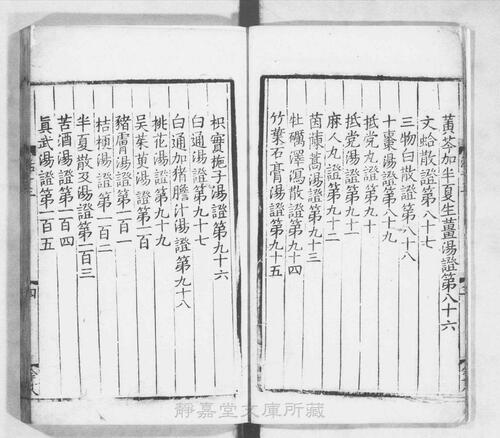 黃芩加半夏生薑湯證第八十六
文蛤散證第八十七
三物白散證第八十八
十棗湯證第八十九
抵党丸證第九十
抵党湯證第九十一
麻人丸證第九十二
茵蔯蒿湯證第九十三
牡蠣澤瀉散證第九十四
竹葉石膏湯證第九十五
枳實梔子湯證第九十六
白通湯證第九十七
白通加豬膽汁湯證第九十八
桃花湯證第九十九
吳茱萸湯證第一百
豬膚湯證第一百一
桔梗湯證第一百二
半夏散及湯證第一百三
苦酒湯證第一百四
眞武湯證第一百五
靜嘉堂文庫所藏